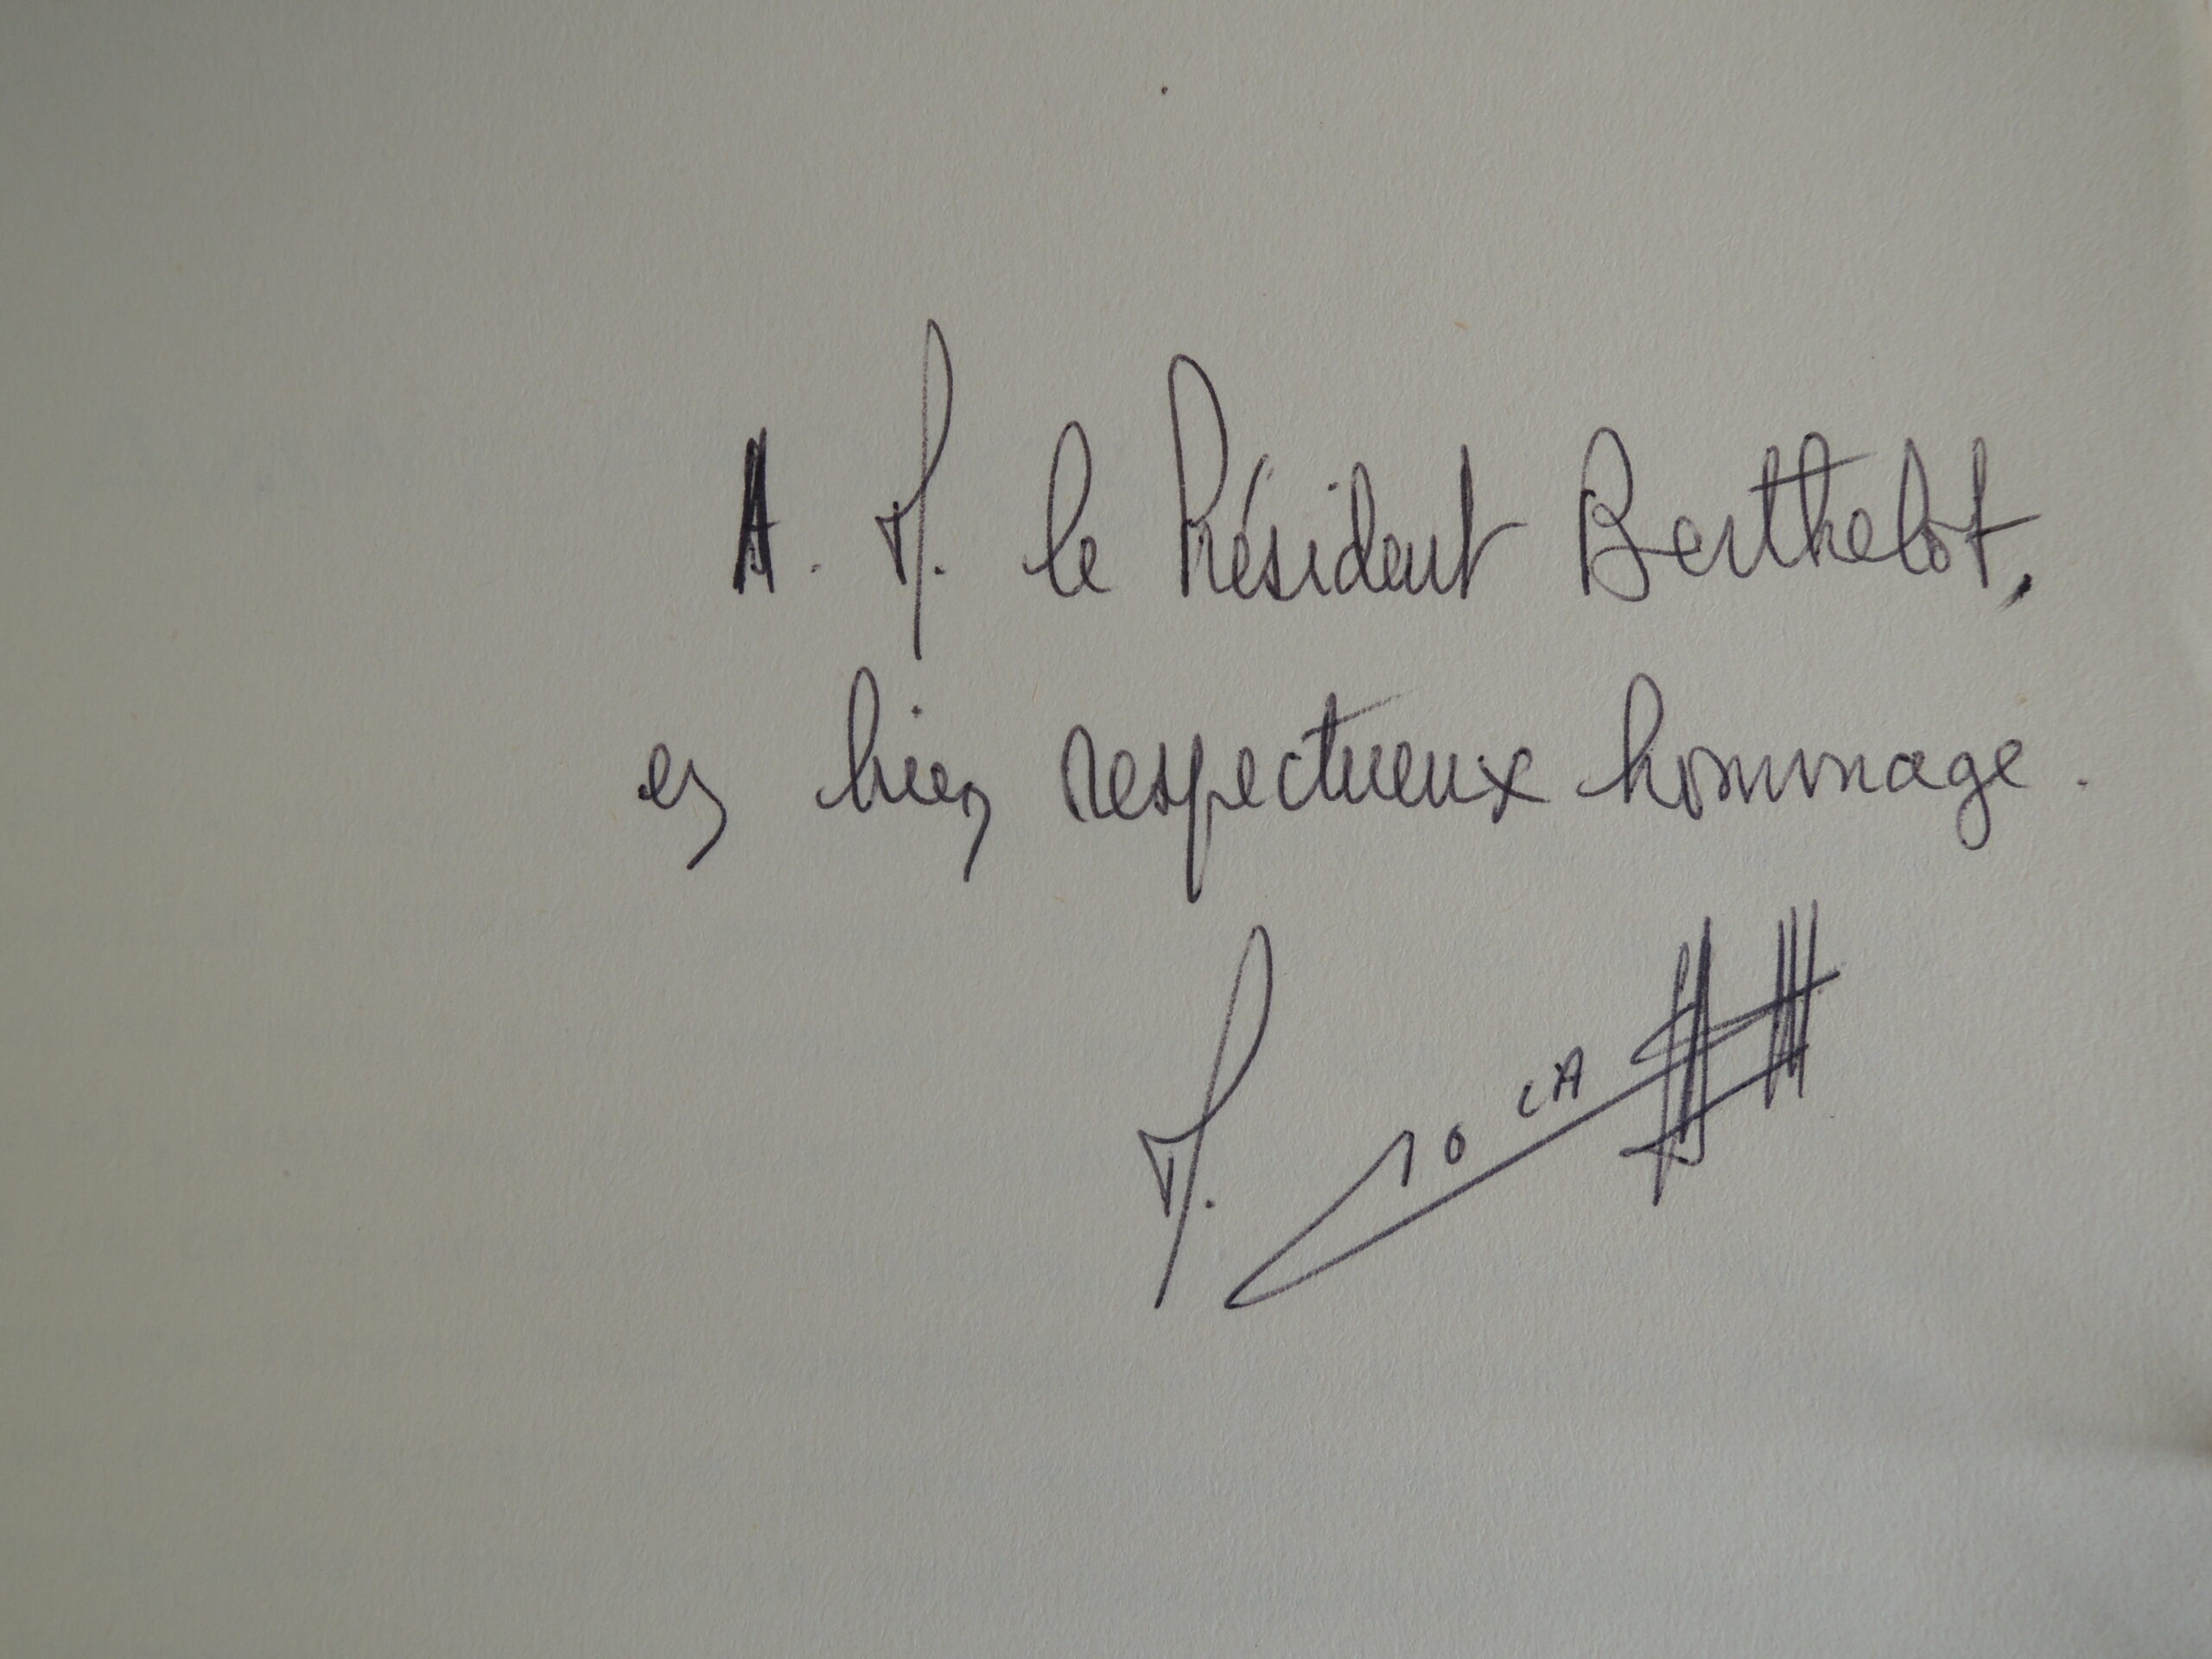 A. M. le Président Berthelot,
en bien respectueux hommage.
M.